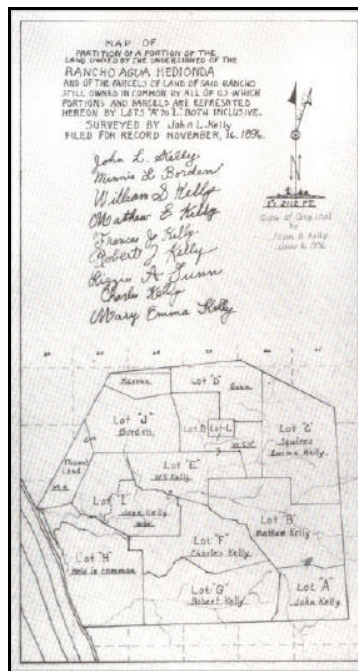 MAP OF
PARTITION OF A PORTION OF THE
LAND OWNED BY THE UNDERSIGNED OF THE
RANCHO AGUA HEDIONDA
AND OF THE PARCELS OF LAND OF SAID RANCHO
STILL OWNED IN COMMON BY ALL OF US WHICH
PORTIONS AND PARCELS ARE REPRESENTED
HEREON BY LOTS "A" TO "L" BOTH INCLUSIVE.
SURVEYED BY John L. Kelly
FILED FOR RECORD NOVEMBER, 16. 1896.
John L. Kelly
Minnie L Borden
William S Kelly
Mathew E Kelly
Frances J Kelly
Robert J Kelly
Lizzie A Gunn
Charles Kelly
Mary Emma Kelly
N
Copy of Original
by
Kelly
Lot "D"
Gunn
Lot "J"
Borden
Lot-L
Squires
Emma Kelly
Lot "E"
W.S. Kelly
Lot "I"
Lot "B"
Mathew Kelly
Lot "F"
Charles Kelly
Lot "H"
Held in common
Lot "G"
Robert Kelly
Lot "A"
John Kelly